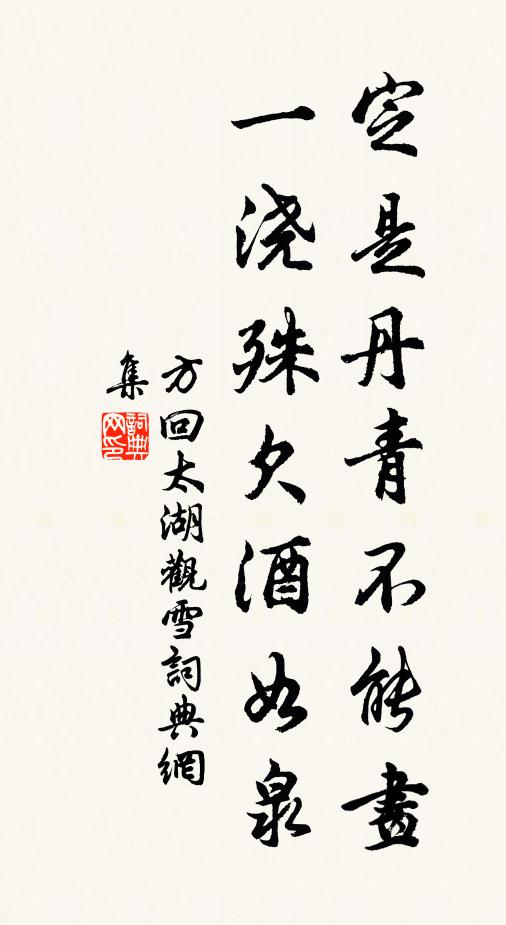 定是丹青不能畫
一浇殊欠酒如泉
方回太湖觀雪詞典網
集
詞典網印